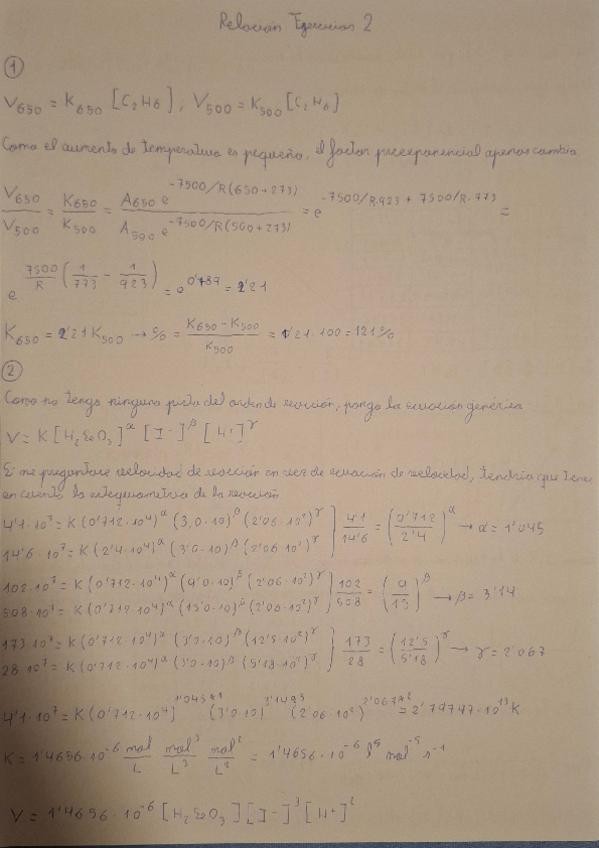 Relación Ejercicios 2
①
V650 = K650 [C2H6] ; V500 = K500 [C2H6]
Como el aumento de temperatura es pequeño, el factor preexponencial apenas cambia.
V650/V500 = K650/K500 = A650 e^-7500/R(650+273) / A500 e^-7500/R(500+273) = e^-7500/R.923 + 7500/R.773 =
e^7500/R (1/773 - 1/923) = e^0'789 = 2'21
K650 = 2'21 K500 → % = K650 - K500 / K500 = 1'21 · 100 = 121%
②
Como no tengo ninguna pista del orden de reacción, pongo la ecuación genérica
V = K [H2SeO3]^α [I-]^β [H+]^γ
Si me preguntase velocidad de reacción en vez de ecuación de velocidad, tendría que tener
en cuenta la estequiometría de la reacción
4'1·10^7 = K (0'712·10^4)^α (3,0·10)^β (2'06·10^2)^γ } 4'1/14'6 = (0'712/2'4)^α → α = 1'045
14'6·10^7 = K (2'4·10^4)^α (3'0·10)^β (2'06·10^2)^γ
102·10^7 = K (0'712·10^4)^α (9'0·10)^β (2'06·10^2)^γ } 102/508 = (9/15)^β → β = 3'14
508·10^7 = K (0'712·10^4)^α (15'0·10)^β (2'06·10^2)^γ
173·10^7 = K (0'712·10^4)^α (3'0·10)^β (12'5·10^2)^γ } 173/28 = (12'5/5'18)^γ → γ = 2'067
28·10^7 = K (0'712·10^4)^α (3'0·10)^β (5'18·10^2)^γ
4'1·10^7 = K (0'712·10^4) (3'0·10) (2'06·10^2) = 2'79747·10^13 K
K = 1'4656·10^-6 mol/L mol^3/L^3 mol^2/L^2 = 1'4656·10^-6 l^5 mol^-5 s^-1
V = 1'4656·10^-6 [H2SeO3] [I-]^3 [H+]^2